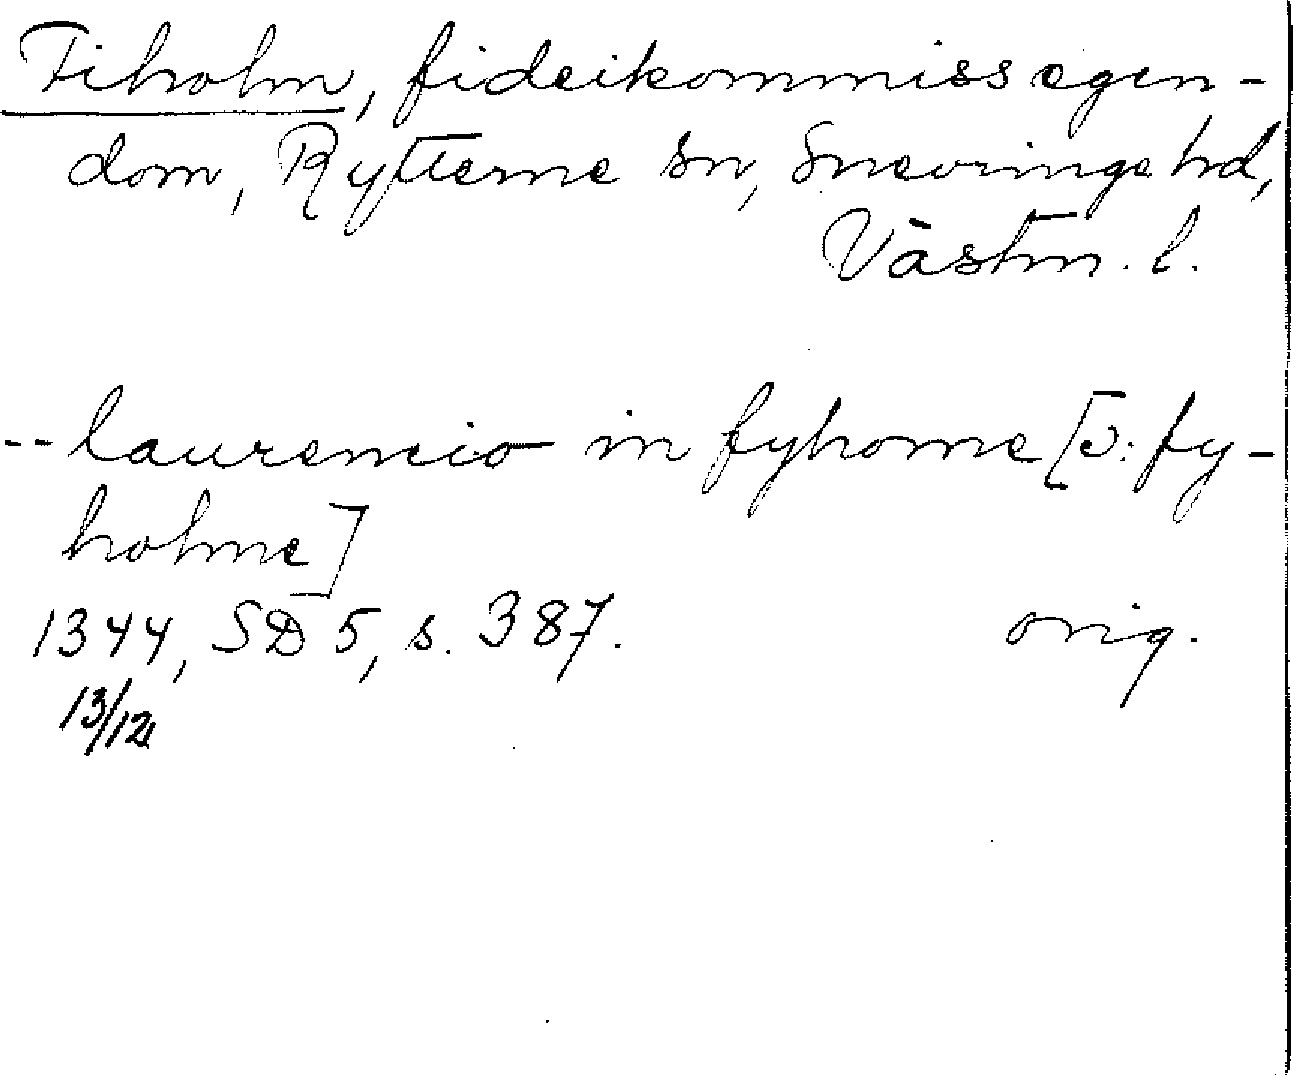 Fiholm, fideikommissegen-
dom, Rytterne sn, Snevringe hd,
Västm. l.
-- laurencio in fyhome [ɔ: fy-
holme]
1344, SD 5, s. 387. orig.
13/12